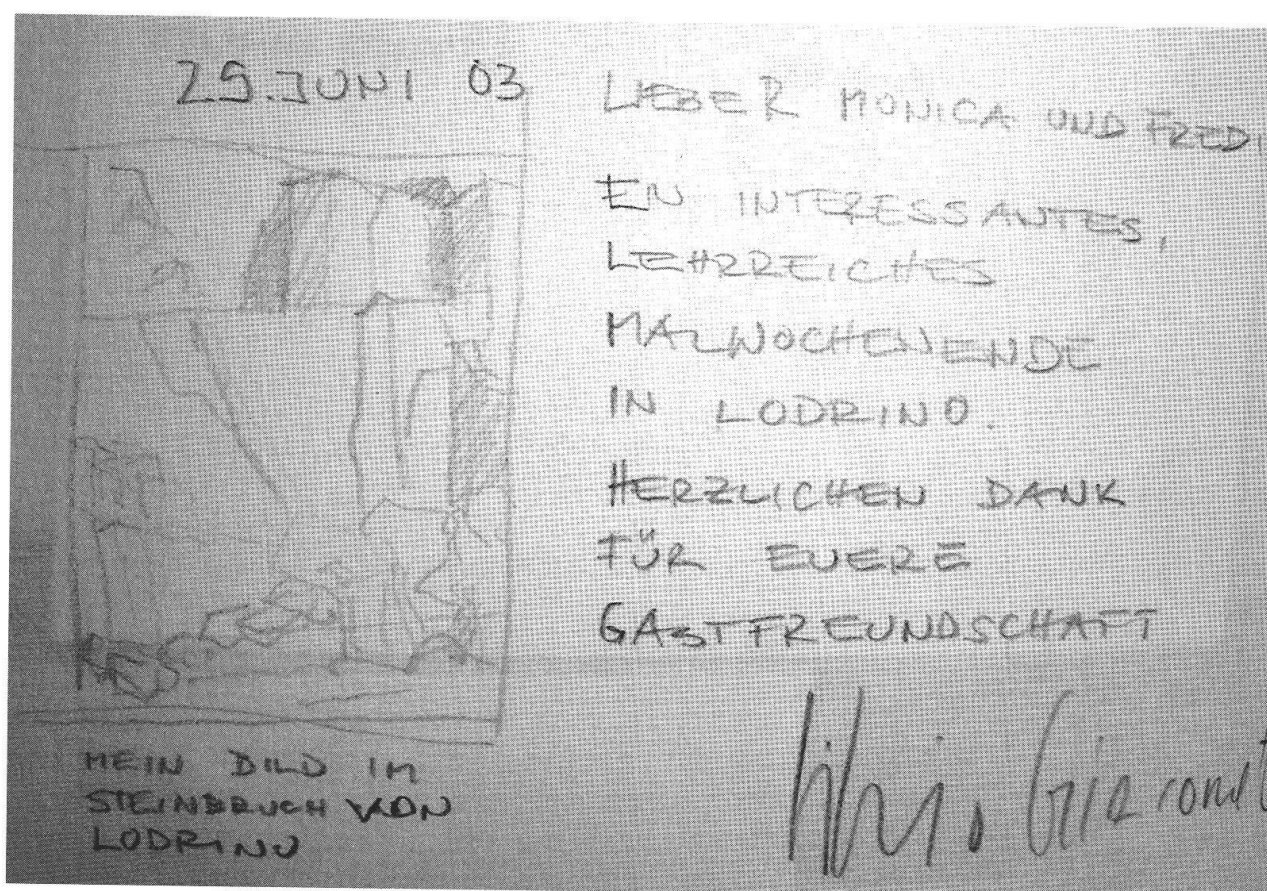 29. JUNI 03
LIEBER MONICA UND FREDI
EN INTERESSANTES,
LEHRREICHES
MALWOCHENENDE
IN LODRINO.
HERZLICHEN DANK
FÜR EUERE
GASTFREUNDSCHAFT
MEIN BILD IM
STEINBRUCH VON
LODRINO